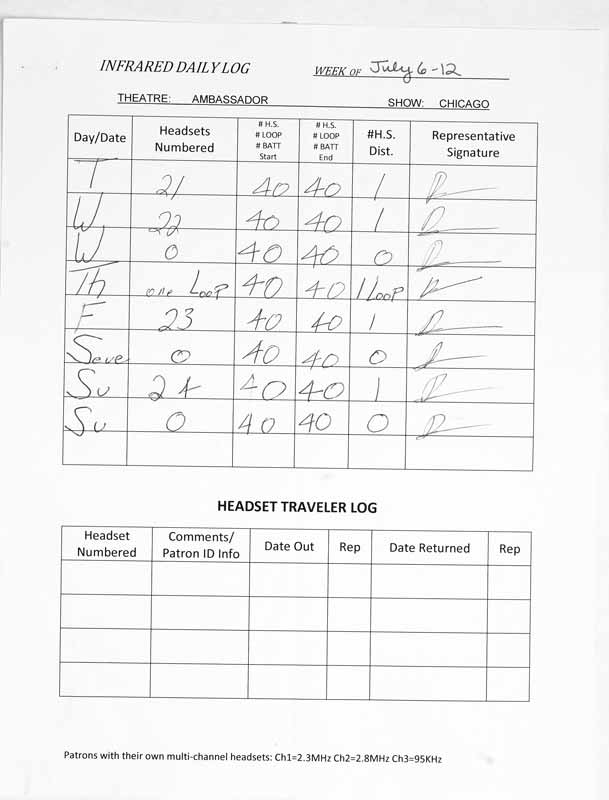 INFRARED DAILY LOG WEEK OF July 6-12
THEATRE: AMBASSADOR SHOW: CHICAGO
Day/Date Headsets Numbered # H.S. # LOOP # BATT Start # H.S. # LOOP # BATT End #H.S. Dist. Representative Signature
T 21 40 40 1
W 22 40 40 1
W 0 40 40 0
Th one Loop 40 40 1 Loop
F 23 40 40 1
Seve 0 40 40 0
Su 24 40 40 1
Su 0 40 40 0
HEADSET TRAVELER LOG
Headset Numbered Comments/ Patron ID Info Date Out Rep Date Returned Rep
Patrons with their own multi-channel headsets: Ch1=2.3MHz Ch2=2.8MHz Ch3=95KHz